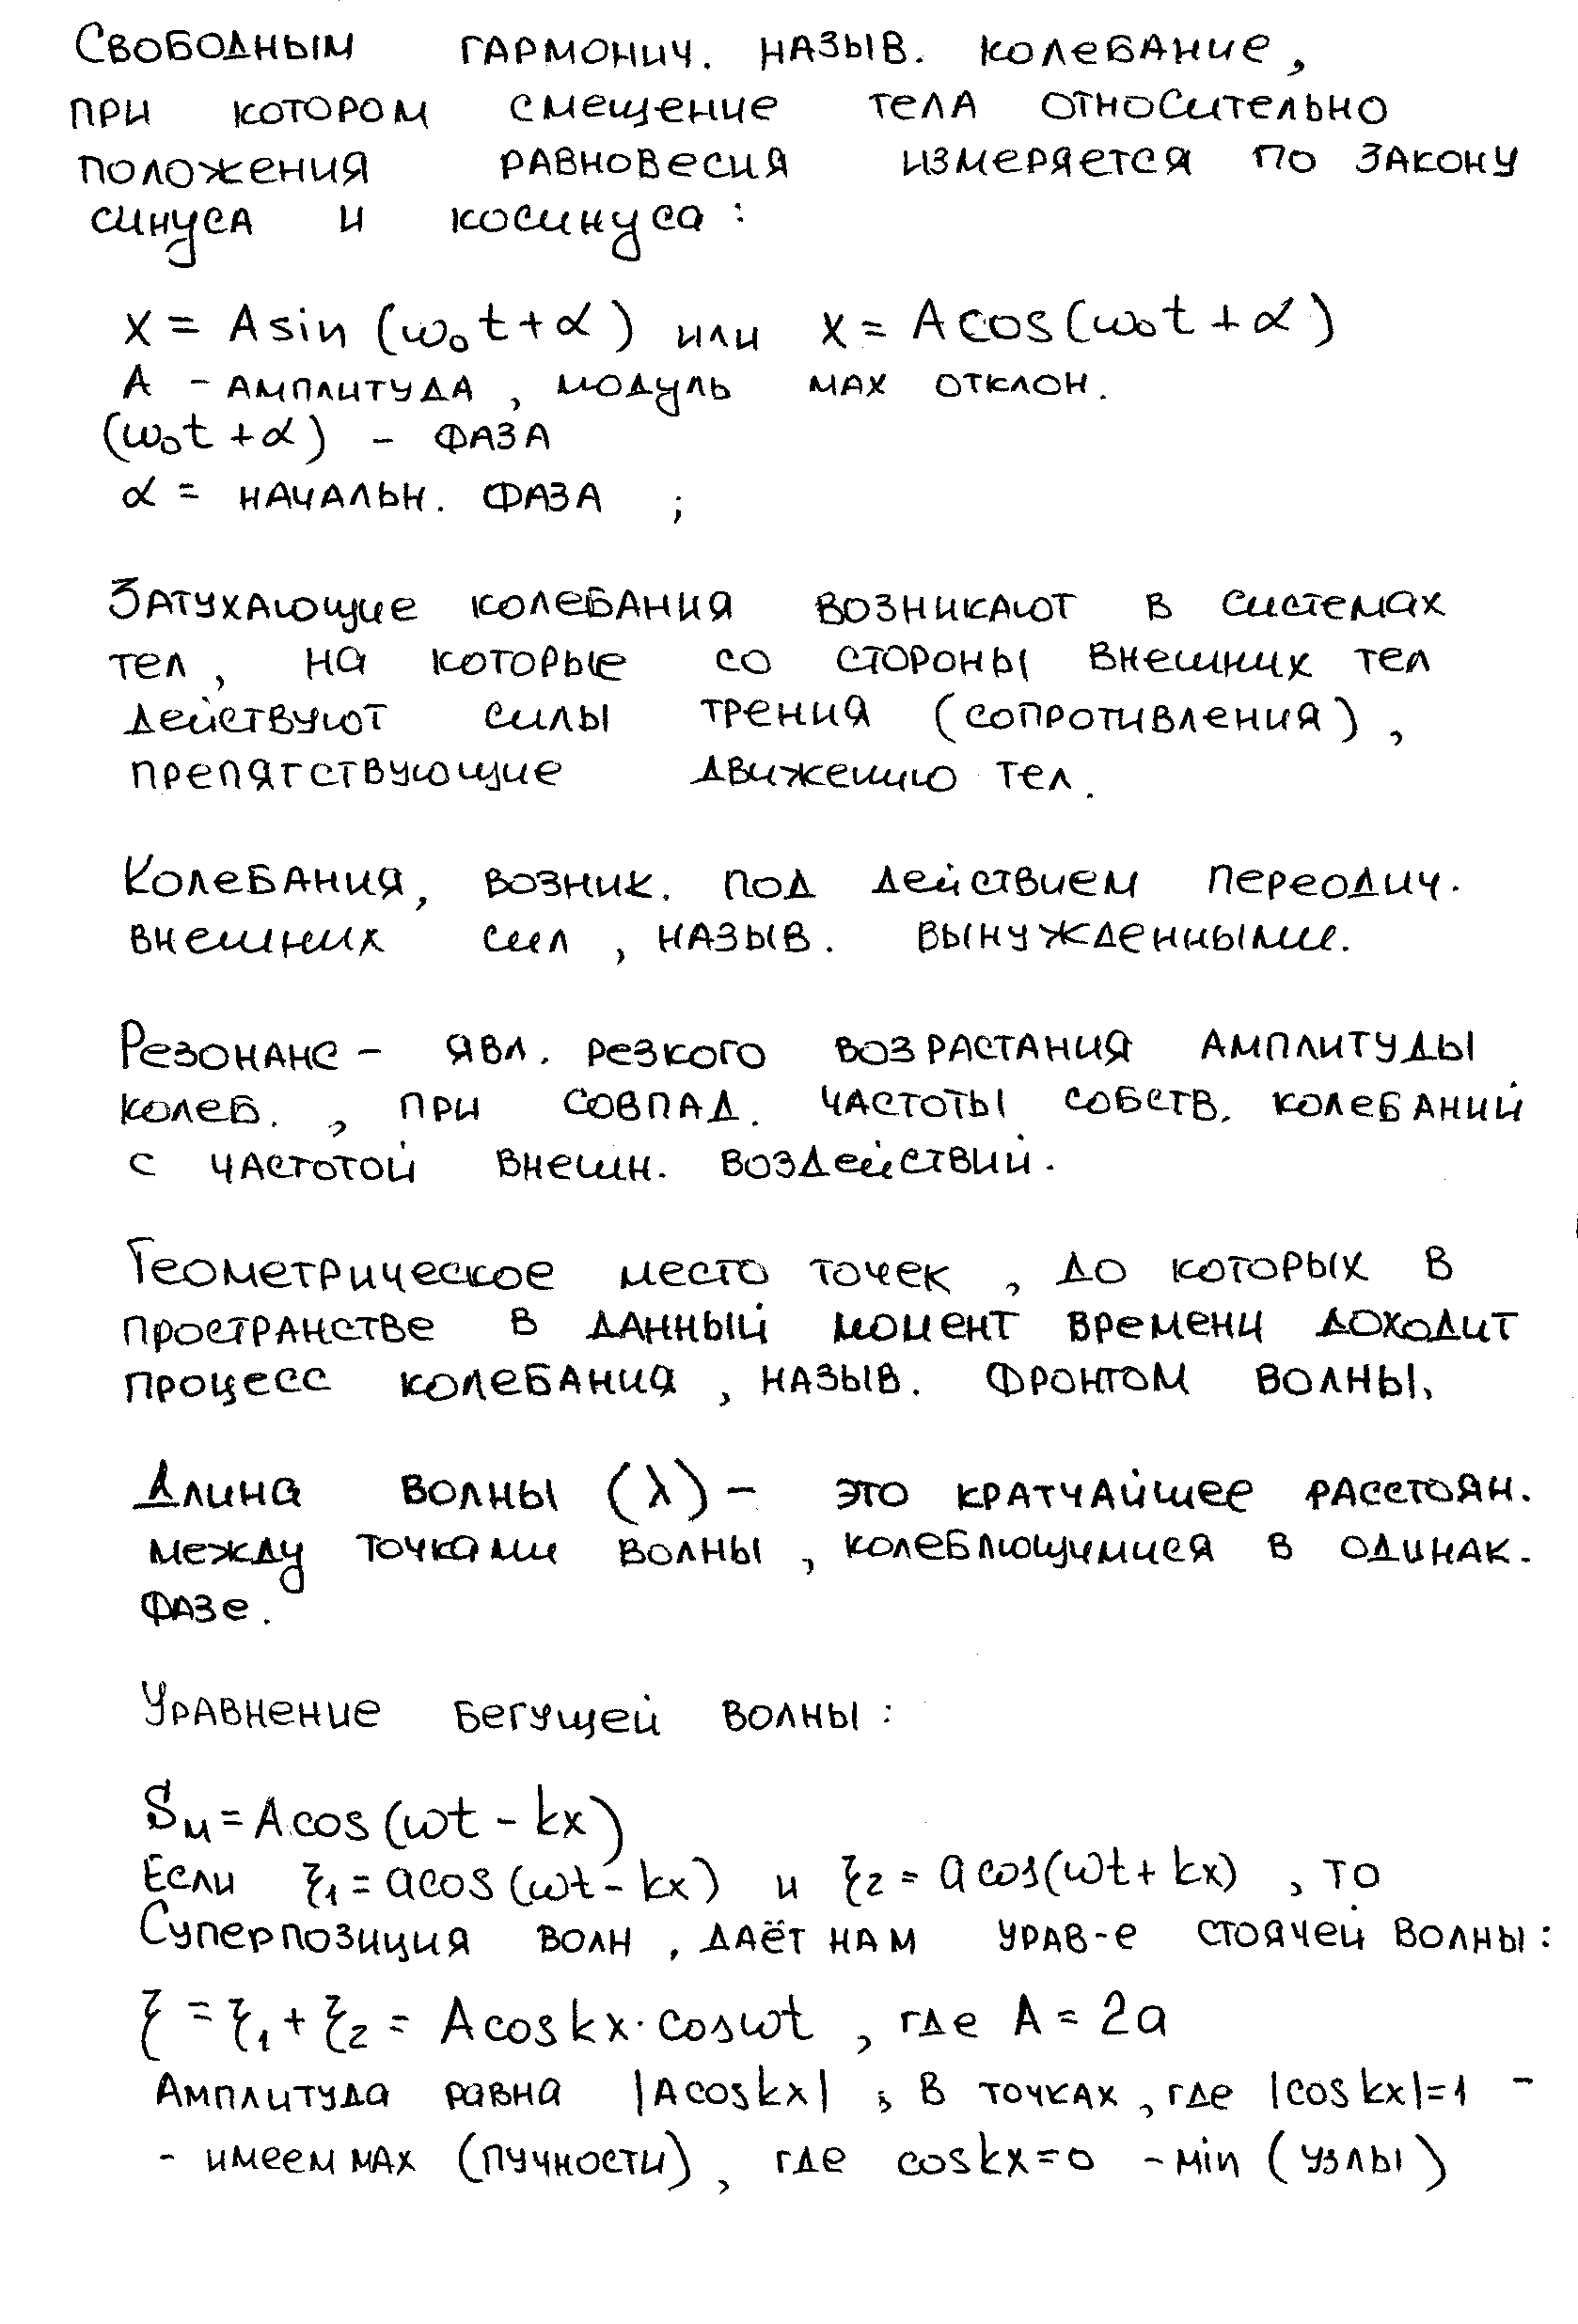 Свободным гармонич. назыв. колебание,
при котором смещение тела относительно
положения равновесия измеряется по закону
синуса и косинуса:
x = A sin (ω₀t + α) или x = A cos(ω₀t + α)
A - амплитуда, модуль мах отклон.
(ω₀t + α) - фаза
α = начальн. фаза ;
Затухающие колебания возникают в системах
тел, на которые со стороны внешних тел
действуют силы трения (сопротивления),
препятствующие движению тел.
Колебания, возник. под действием переодич.
внешних сил, назыв. вынужденными.
Резонанс - явл. резкого возрастания амплитуды
колеб., при совпад. частоты собств. колебаний
с частотой внешн. воздействий.
Геометрическое место точек, до которых в
пространстве в данный момент времени доходит
процесс колебания, назыв. фронтом волны.
Длина волны (λ) - это кратчайшее расстоян.
между точками волны, колеблющимися в одинак.
фазе.
Уравнение бегущей волны:
Sм = A cos (ωt - kx)
Если ξ₁ = a cos (ωt - kx) и ξ₂ = a cos(ωt + kx), то
Суперпозиция волн, даёт нам урав-е стоячей волны:
ξ = ξ₁ + ξ₂ = A cos kx · cos ωt, где A = 2a
Амплитуда равна |A cos kx| ; в точках, где |cos kx|=1 -
- имеем мах (пучности), где cos kx = 0 - min (узлы)